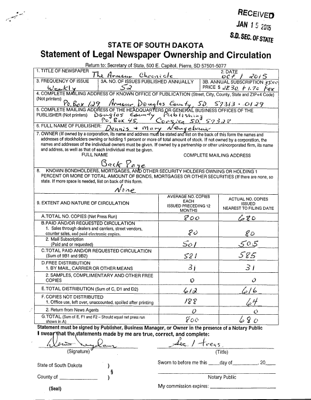 RECEIVED
JAN 15 2016
S.D. SEC. OF STATE
STATE OF SOUTH DAKOTA
Statement of Legal Newspaper Ownership and Circulation
Return to: Secretary of State, 500 E. Capitol, Pierre, SD 57501-5077
1. TITLE OF NEWSPAPER
The Armour Chronicle
2. DATE
Oct 1 2015
3. FREQUENCY OF ISSUE
Weekly
3A. NO. OF ISSUES PUBLISHED ANNUALLY
52
3B. ANNUAL SUBSCRIPTION PRICE
4. COMPLETE MAILING ADDRESS OF KNOWN OFFICE OF PUBLICATION (Street, City, County, State and ZIP+4 Code) (Not printers)
P.O. Box 129 Armour Douglas County, SD 57313-0129
5. COMPLETE MAILING ADDRESS OF THE HEADQUARTERS OR GENERAL BUSINESS OFFICES OF THE PUBLISHER (Not printer)
Douglas County Publishing
P.O. Box 45 Corsica SD 57328
6. FULL NAME OF PUBLISHER
Dennis + Mary
7. OWNER (If owned by a corporation, its name and address must be stated and also on the back of this form the names and addresses of stockholders owning or holding 1 percent or more of total amount of stock. If not owned by a corporation, the names and addresses of the individual owners must be given. If owned by a partnership or other unincorporated firm, its name and address, as well as that of each individual must be given.)
FULL NAME
COMPLETE MAILING ADDRESS
Back Page
8. KNOWN BONDHOLDERS, MORTGAGEES, AND OTHER SECURITY HOLDERS OWNING OR HOLDING 1 PERCENT OR MORE OF TOTAL AMOUNT OF BONDS, MORTGAGES OR OTHER SECURITIES (If there are none, so state. If more space is needed, list on back of this form.
None
9. EXTENT AND NATURE OF CIRCULATION
AVERAGE NO. COPIES EACH ISSUED PRECEDING 12 MONTHS
ACTUAL NO. COPIES ISSUED NEAREST TO FILING DATE
A. TOTAL NO. COPIES (Net Press Run) 800 680
B. PAID AND/OR REQUESTED CIRCULATION
1. Sales through dealers and carriers, street vendors, counter sales, and paid electronic copies. 80 80
2. Mail Subscription (Paid and or requested) 501 505
C. TOTAL PAID AND/OR REQUESTED CIRCULATION (Sum of 9B1 and 9B2) 581 585
D. FREE DISTRIBUTION
1. BY MAIL, CARRIER OR OTHER MEANS 31 31
2. SAMPLES, COMPLIMENTARY AND OTHER FREE COPIES 0 0
E. TOTAL DISTRIBUTION (Sum of C, D1 and D2) 612 616
F. COPIES NOT DISTRIBUTED
1. Office use, left over, unaccounted, spoiled after printing 188 64
2. Return from News Agents 0 0
G. TOTAL (Sum of E, F1 and F2 - Should equal net press run shown in A) 800 680
Statement must be signed by Publisher, Business Manager, or Owner in the presence of a Notary Public
I swear that the statements made by me are true, correct, and complete:
Sec / treas
(Signature)
(Title)
State of South Dakota )
§
County of )
(Seal)
Sworn to before me this day of , 20
Notary Public
My commission expires: